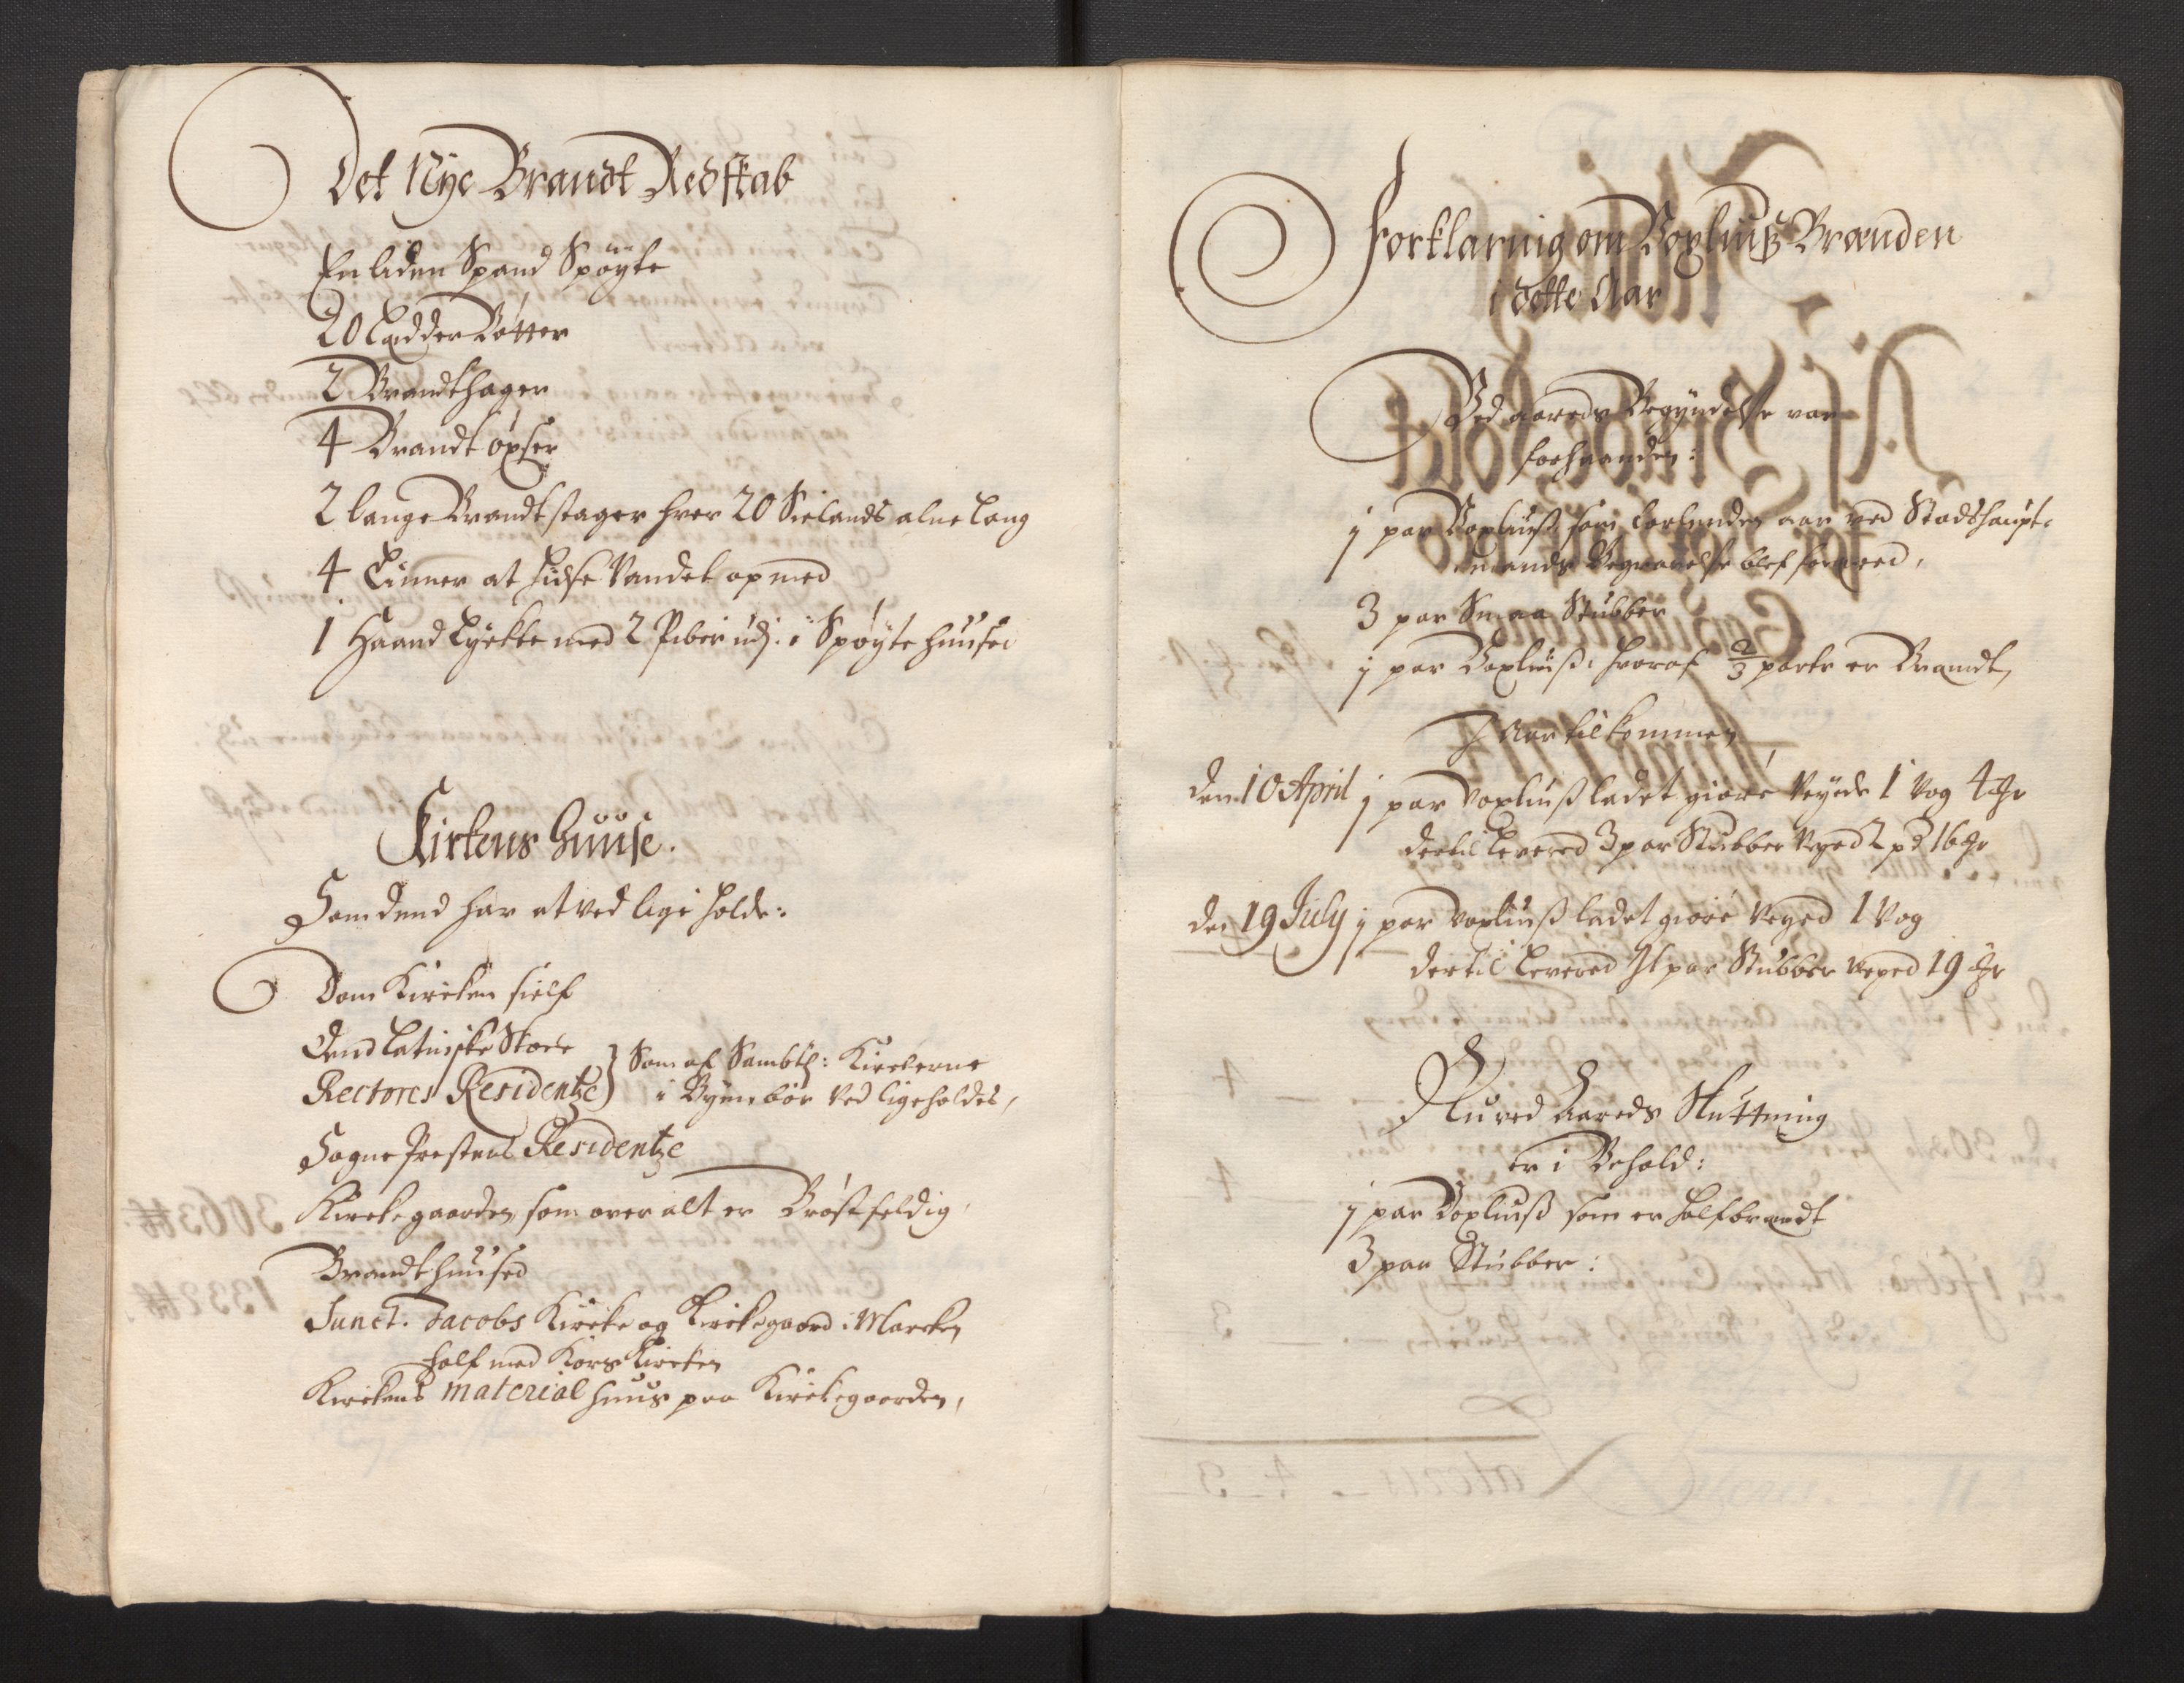 Det Nye Brandt Redskab
En liden Spand Spøyte
20 Lædder Bøtter
2 Brandthager
4 Brandt øxser
2 lange Brandtstager hver 20 Sielands alne lang
4 Linner at hidse Vandet op med
1 Haand Lyckte med 2 Piber udj i Spøyte huused
Kirkens huuse.
Som dend har at ved lige holde:
Dom Kircken sielf
Dend Latinske Skoele
Rectores Residentze } Som af Sambtl: Kircherne
i Byen bør ved lige holdes,
Sogne Prestens Residentze
Kirckegaarden som over alt er Brøstfeldig,
Brandthuused
Sanct. Jacobs Kircke og Kirckegaard i Marcken
half med Kors Kircken
Kirckens material huus paa Kirckegaarden,
Forklaring om Voxliuß Brænden
i dette Aar
Ved aareds Begyndelse var
forhaanden:
j par Voxliuß som forleeden aar ved Stadshaupt-
mands Begravelse blef foræred,
3 par Smaa Stubber
j par Voxliuß hvoraf 2/3 parte er Brændt,
J Aar tilkommen
den 10 April j par voxliuß ladet giøre veyede 1 Vog 4
dertil levered 3 par Stubber veyed 2 pd 16
den 19 July j par voxliuß ladet giøre veyed 1 Vog
dertil levered par Stubber veyed 19
Nu ved Aareds Sluttning
er i Behold:
j par Voxliuß som er half brændt
3 par Stubber: